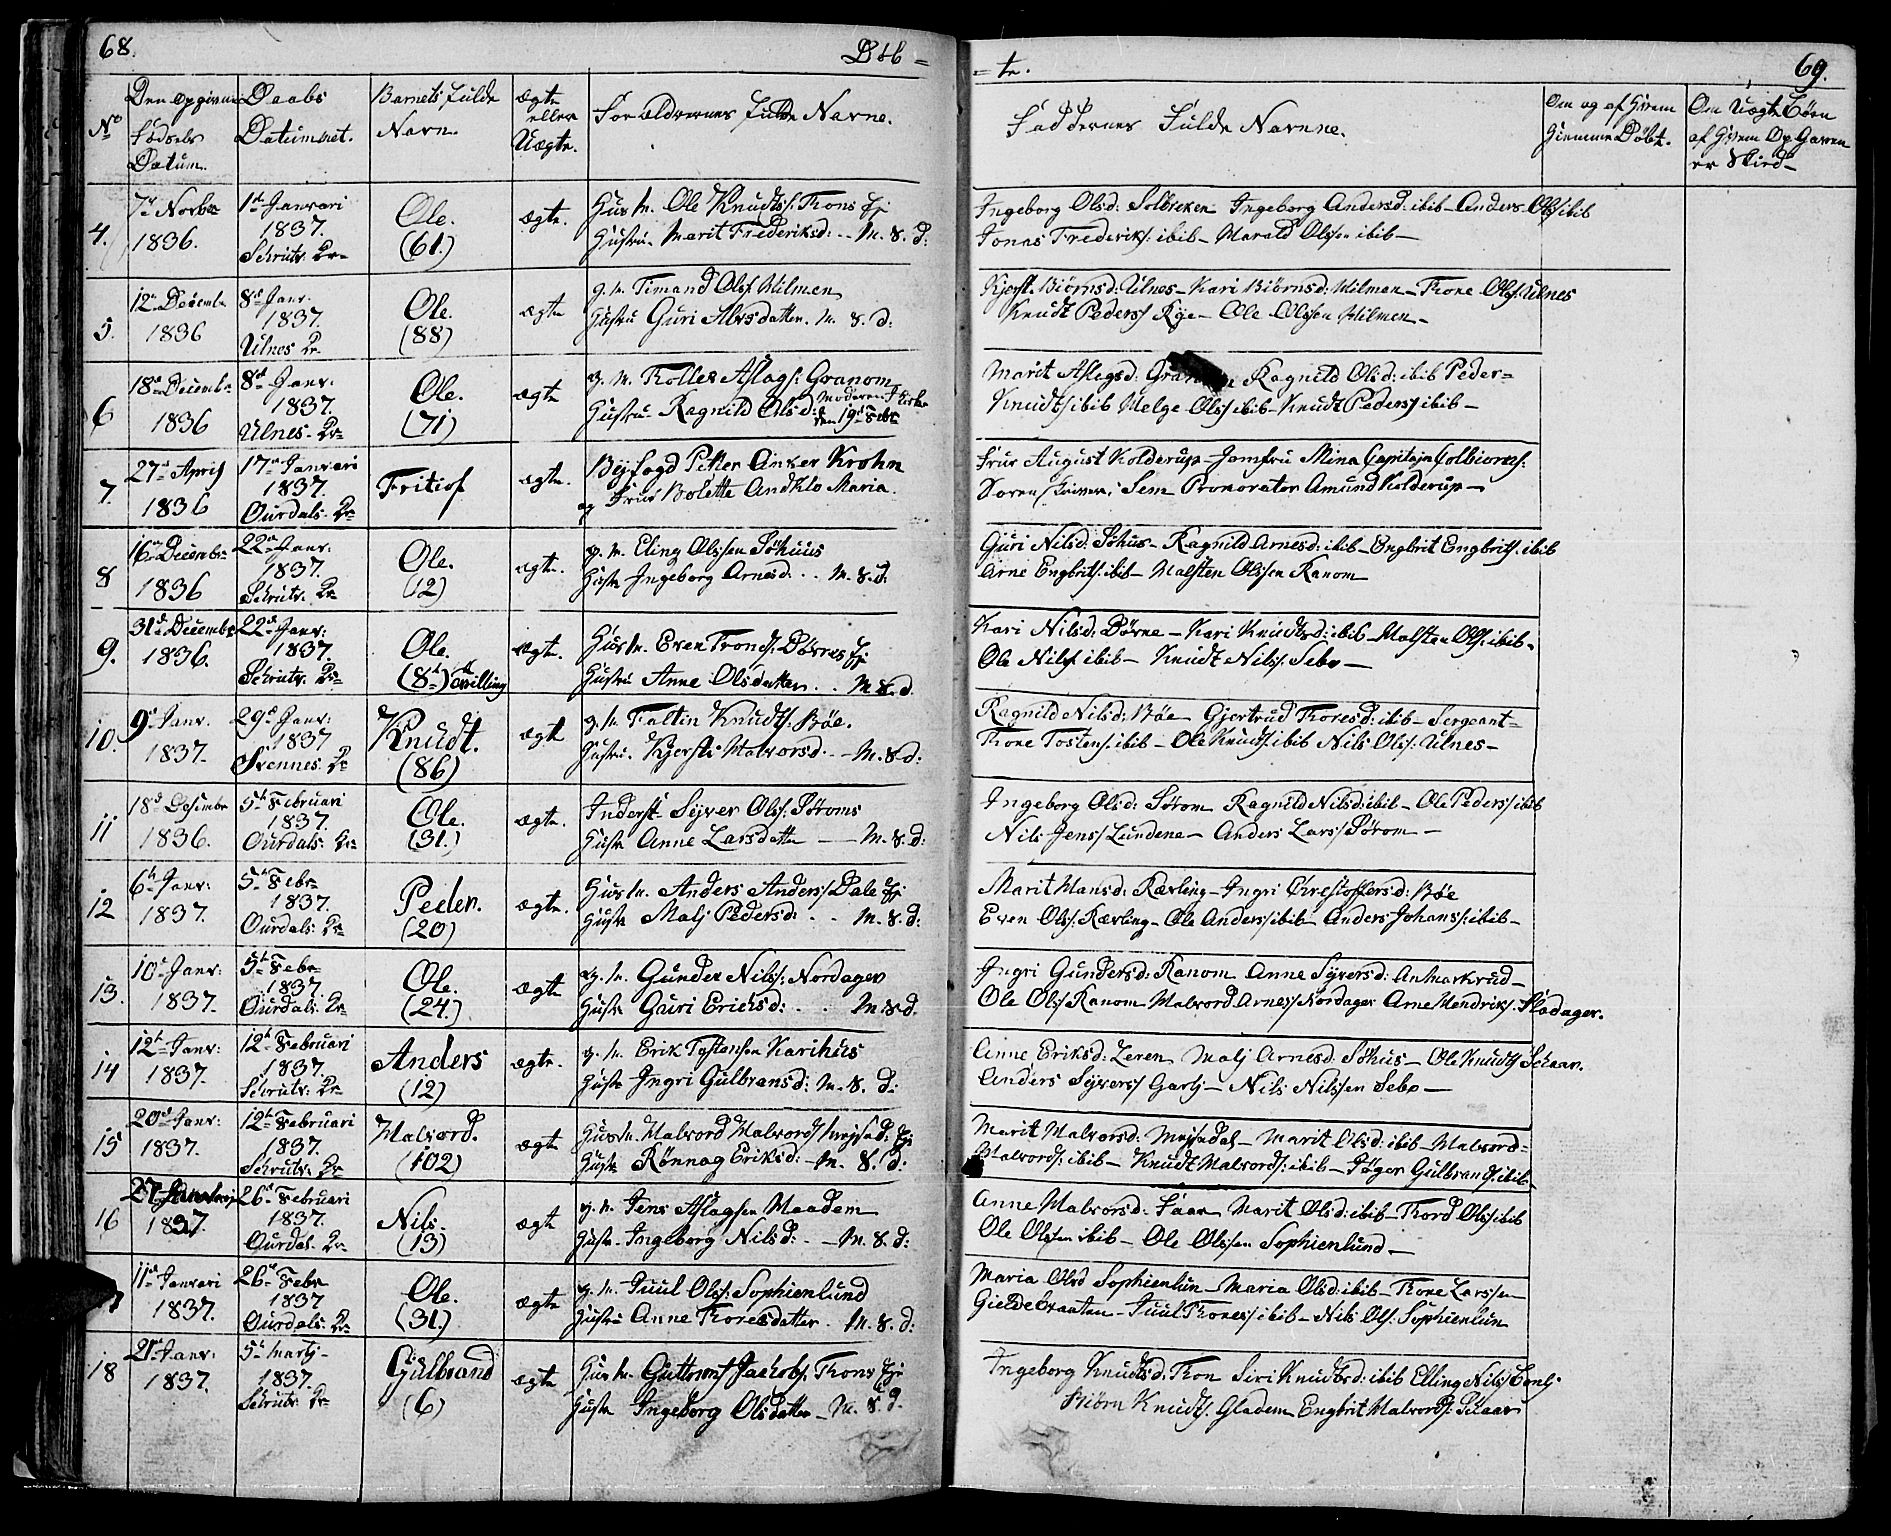 68.
Døb =
Den Opgivne Fødsels Datum.
Daabs Datummet.
Barnets Fulde Navn.
ægte eller Uægte.
Forældrernes Fulde Navne.
No
4. 7de Novbr 1836. 1ste Januari 1837. Skrutv. Ole. (61.) ægte.
Husm. Ole Knudss: Thons Ej
Hustru. Marit Frederiksd: .. M. S. d:
5. 12te Decembr 1836 8de Janr. 1837. Ulnes Ole. (88) ægte
g. m. Timand Olss Hilmen
Hustru Guri Alvsdatter. M. S. d:
6 18de Decembr 1836 8de Janr: 1837. Ulnes. Ole. (71) ægte
g. m. Tollev Aslags: Granom
Hustru Ragnild Olsd: Moderen I Kirke den 19de Febr
7. 27de April 1836 17de Januari 1837. Ourdals. Fritiof ægte.
Byfogd Petter Anker Krohn
og Frue Bolette Andkla Maria.
8 16de Decembr 1836 22de Janr: 1837. Skrutv. Ole. (12) ægte.
g. m. Eling Olssen Søhuus
Hustr Ingeborg Arnesd: . . M. S. d:
9. 31de Decembr 1836. 22de Janr: 1837. Skrutv. Ole. (8de) tvilling ægte.
Husm. Even Trondss. Børnes Ej
Hustru Anne Olsdatter . . M. S. d.
10. 9de Janr. 1837. 29de Janr: 1837 Svennes. Knudt. (86) ægte
g. m. Faltin Knudts: Bøe.
Hustru. Kjersti Halvorsd. .. M. S. d:
11 18de Desembr 1836. 5te Februari 1837. Ourdals: Ole. (31.) ægte.
Inderst Syver Olss. Søroms
Hustr Anne Larsdatter — M. S. d:
12 6te Janr: 1837. 5te Febr 1837. Ourdals: Peder. (20) ægte.
Husm. Anders Anderss Dale Ej
Hustr Malj Pedersd: . . M. S. d:
13. 10de Janr: 1837. 5te Febr 1837. Ourdals. Ole. (24.) ægte
g. m. Gunder Nilss: Nordager
Hustr Guri Ericksd: . . M. S. d.
14 12te Janr: 1837. 12te Februari 1837. Skrutv. Anders (12) ægte.
g. m. Erik Tostensen Karihus
Hustr Ingri Gulbransd: M. S. d:
15 20de Janr: 1837. 12te Februari 1837. Skrutv. Halvord. (102) ægte
Husm. Halvord Halvords Ej
Hustr Rönnog Eriksd: — M. S. d:
16 27 1837. 26de Februari 1837. Ourdal. Nils. (13) ægte
g. m. Jens Aslagsen Haadem
Hustr. Ingeborg Nilsd: . — M. S. d:
11te Januari 1837. 26de Febr 1837 Ourdals: Ole. (31.) ægte
g. m. Juul Olss: Sophienlund
Hustru Anne Thoresdatter. M. S. d:
18 21de Janr: 1837. 5te Martj 1837. Skrutv Gulbrand (6) ægte
Husm. Guttorm Jackobs. Thons Ej
Hustr Ingeborg Olsdatter — M. S. d.
= te.
69.
Faddernes Fulde Navnne.
Om og af hvem Hiemme Døbt.
Om Uægte Børn af hvem Op Gaven er Skied
Ingeborg Olsd: Solbreken Ingeborg Andersd: ibid — Anders Olss ibid
Jonas Frederiks: ibid — Marald Olssen ibid —
Kjerst. Biörnsd: Ulnes — Kari Biörnsd: Hilmen — Thore Olss. Ulnes
Knudt Pederss Rye — Ole Olssen Hilmen —
Marit Aslegsd: Ragnild Olsd: ibid Peder-
Knudtss ibid Helge Olss ibid — Knudt Pederss ibid —
Frue August Kolderup — Jomfru Mina Capitajn Colbiørnss:
Soren Sem Prokorator Amund Kolderup —
Guri Nilsd: Søhus — Ragnild Arnesd: ibid — Engbrit Engbrits. ibid
Arne Engbrits: ibid — Halsten Olssen Ranom
Kari Nilsd: Børne — Kari Knudtsd: ibid — Halsten Olss: ibid —
Ole Nilss ibid — Knudt Nilss. Sebo —
Ragnild Nilsd: Bøe Gjertrud Thoresd: ibid — Sergeant —
Thore Tostens: ibid — Ole Knudts: ibid Nils Olss: Ulnes —
Ingeborg Olsd: Sørom Ragnild Nilsd: ibid — Ole Pederss ibid
Nils Jenss Lundene — Anders Larss Sørom —
Marit Hansd: Rævling — Ingri Christoffersd: Bøe
Even Olss: Rævling — Ole Anderss ibid — Anders Johanss: ibid —
Ingri Gundersd: Ranom Anne Syversd: Anmarkrud —
Ole Olss Ranom Halvord Arness Nordager Arne Hendriks. Fladager.
Anne Eriksd: Leren Malj Arnesd: Søhus — Ole Knudts Skaar.
Anders Syverss Garlj — Nils Nilssen Sebo —
Marit Halvorsd: — Marit Olsd: ibid — Halvord-
Halvords: ibid — Knudt Halvords: ibid — Gulbrands ibid.
Anne Halvorsd: Marit Olsd: ibid — Thord Olss ibid
Ole Olssen ibid — Ole Olssen Sophienlund —
Maria Olsd Sophienlun — Maria Olsd: ibid — Thore Larssen
Gieldebraaten — Juul Thoress ibid — Nils Olss: Sophienlun
Ingeborg Knudtsd. Thon Siri Knudtsd: ibid Elling Nilss
Biörn Knudts. Gladem Engbrit Halvords. Skaar